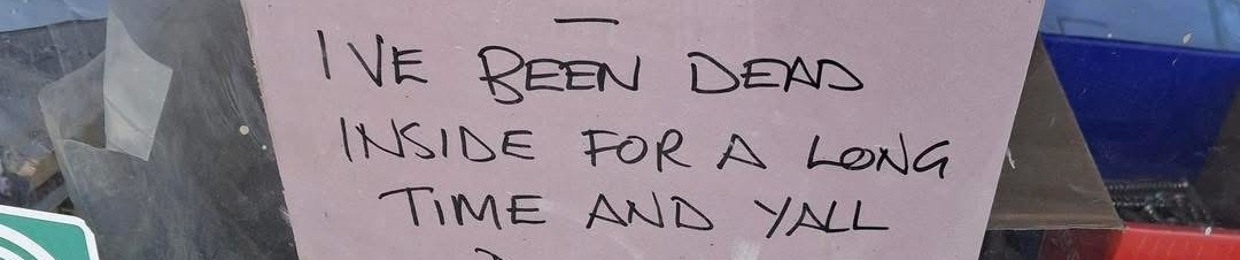 I'VE BEEN DEAD
INSIDE FOR A LONG
TIME AND YALL